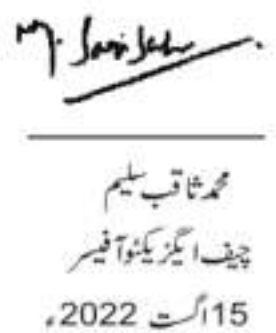 محمد ثاقب سلیم
چیف ایگزیکٹو آفیسر
15 اگست 2022ء